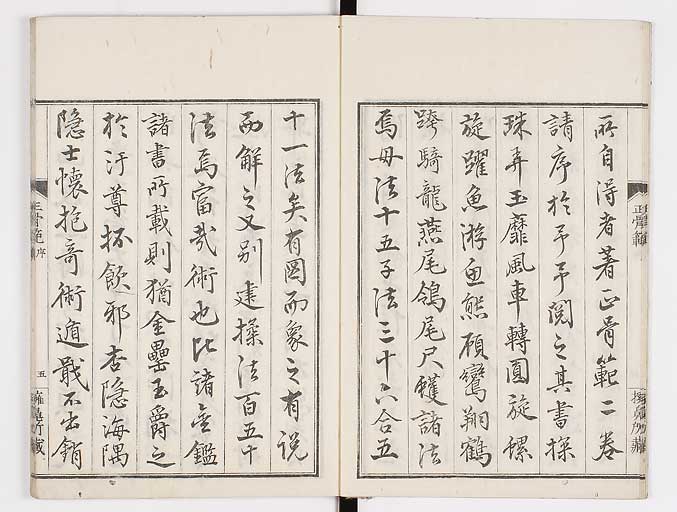 所自得者著正骨範二卷
請序於予予閱之其書探
珠弄玉靡風車轉圓旋螺
旋躍魚游魚熊顧鸞翔鶴
跨騎龍燕尾鴿尾尺蠖諸法
焉母法十五子法三十六合五
十一法矣有圖而象之有説
而解之又別建揉法百五十
法焉富哉術也比諸金鑑
諸書所載則猶金罍玉爵之
於汙尊抔飲邪杏隱海隅
隱士懷抱奇術遁戢不出銷
正骨範
正骨範 序
五